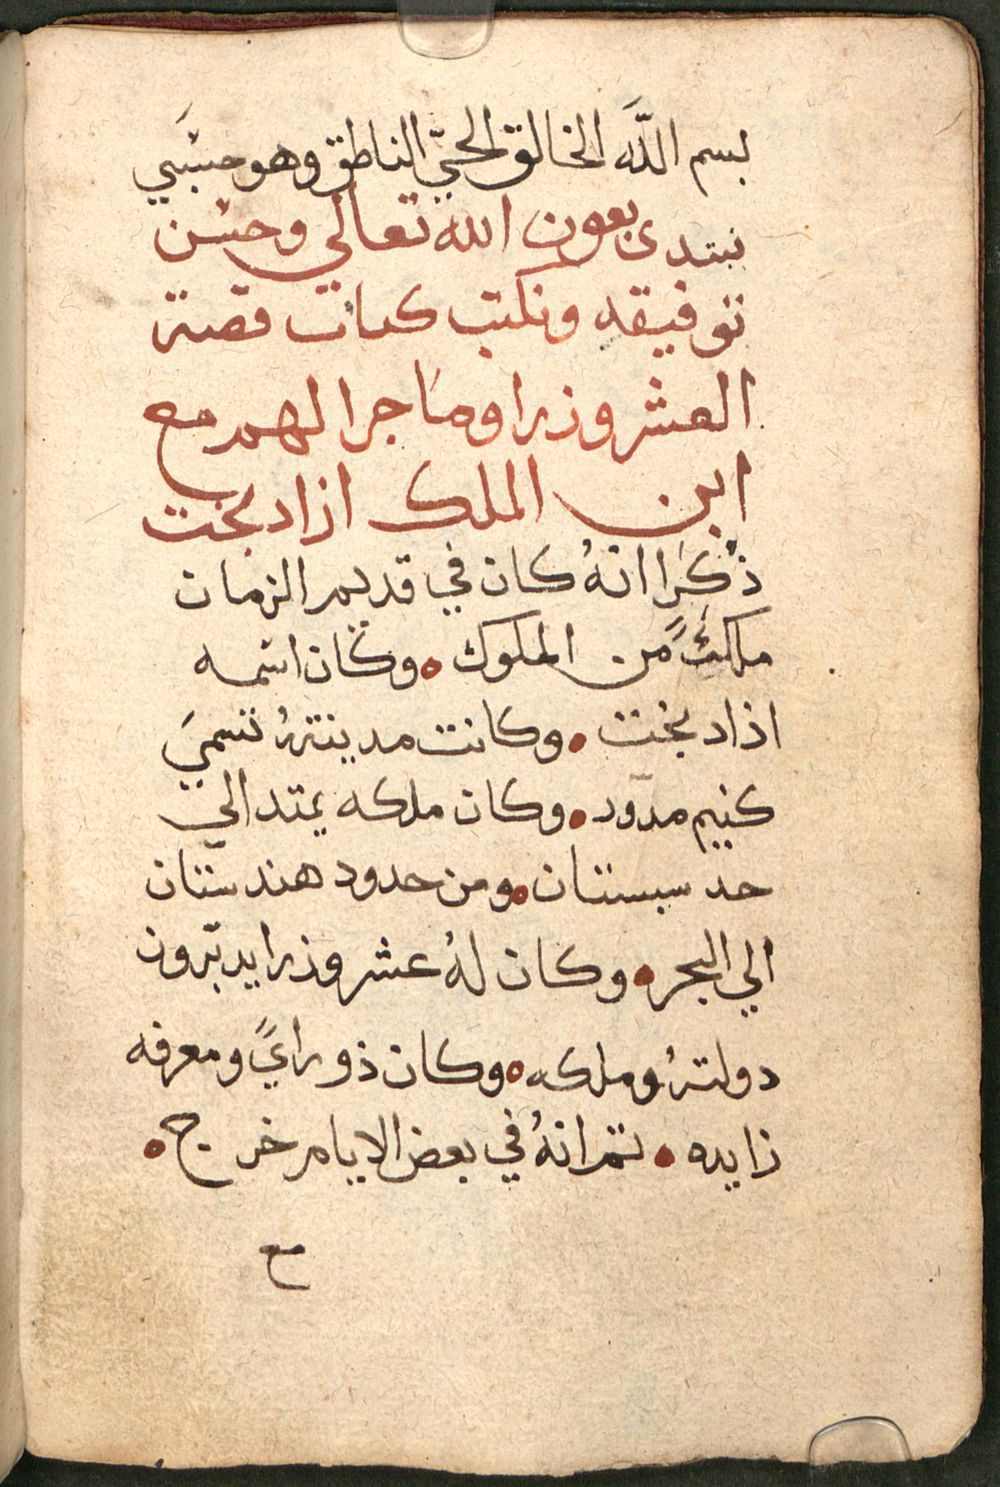 بسم اللَّه الخالق الحيّ الناطق وهو حسْبَي
نبتدى بعون الله تعالي وحسْن
توفيقه ونكتب كتاب قصة
العشر وزرا وما جرا لهم مع
ابن الملك ازاد بخت
ذُكرَ اانهُ كان في قديم الزمان
ملكٌ من الملوك ه وكان اسمه
اذاد بخت ه وكانت مدينتهُ تسميَ
كنيم مدوّد ه وكان ملكه يمتد الي
حد سبستان ه ومن حدود هندستان
الي البحر ه وكان لهُ عشر وزرا يدبّرون
دولتهُ وملكه ه وكان ذو رايً ومعرفه
زايده ه ثم انهُ في بعض الايام خرج ه
مع